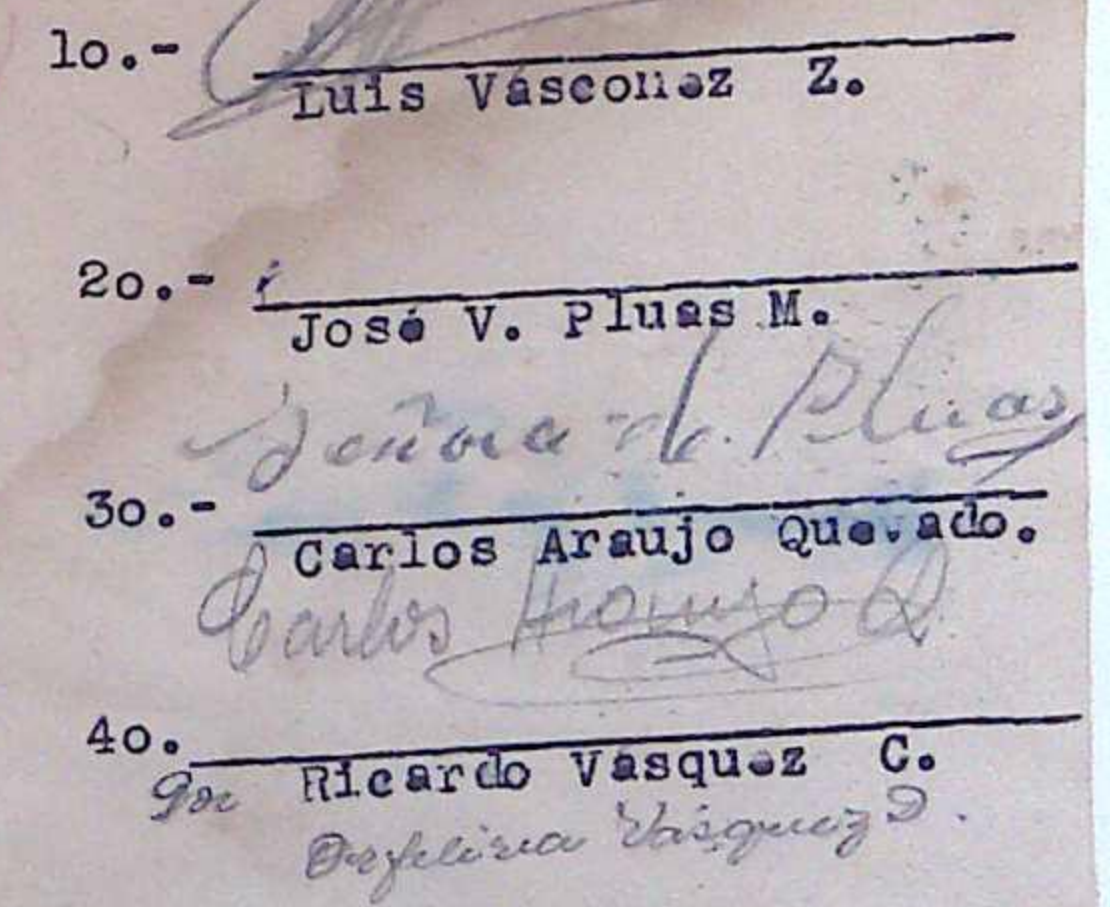 1o.-
Luis Vásconez Z.
2o.-
José V. Pluas M.
Señora de Pluas
3o.-
Carlos Araujo Quevado.
Carlos Araujo Q
4o.
Por Ricardo Vasquez C.
Orfelina Vásquez D.